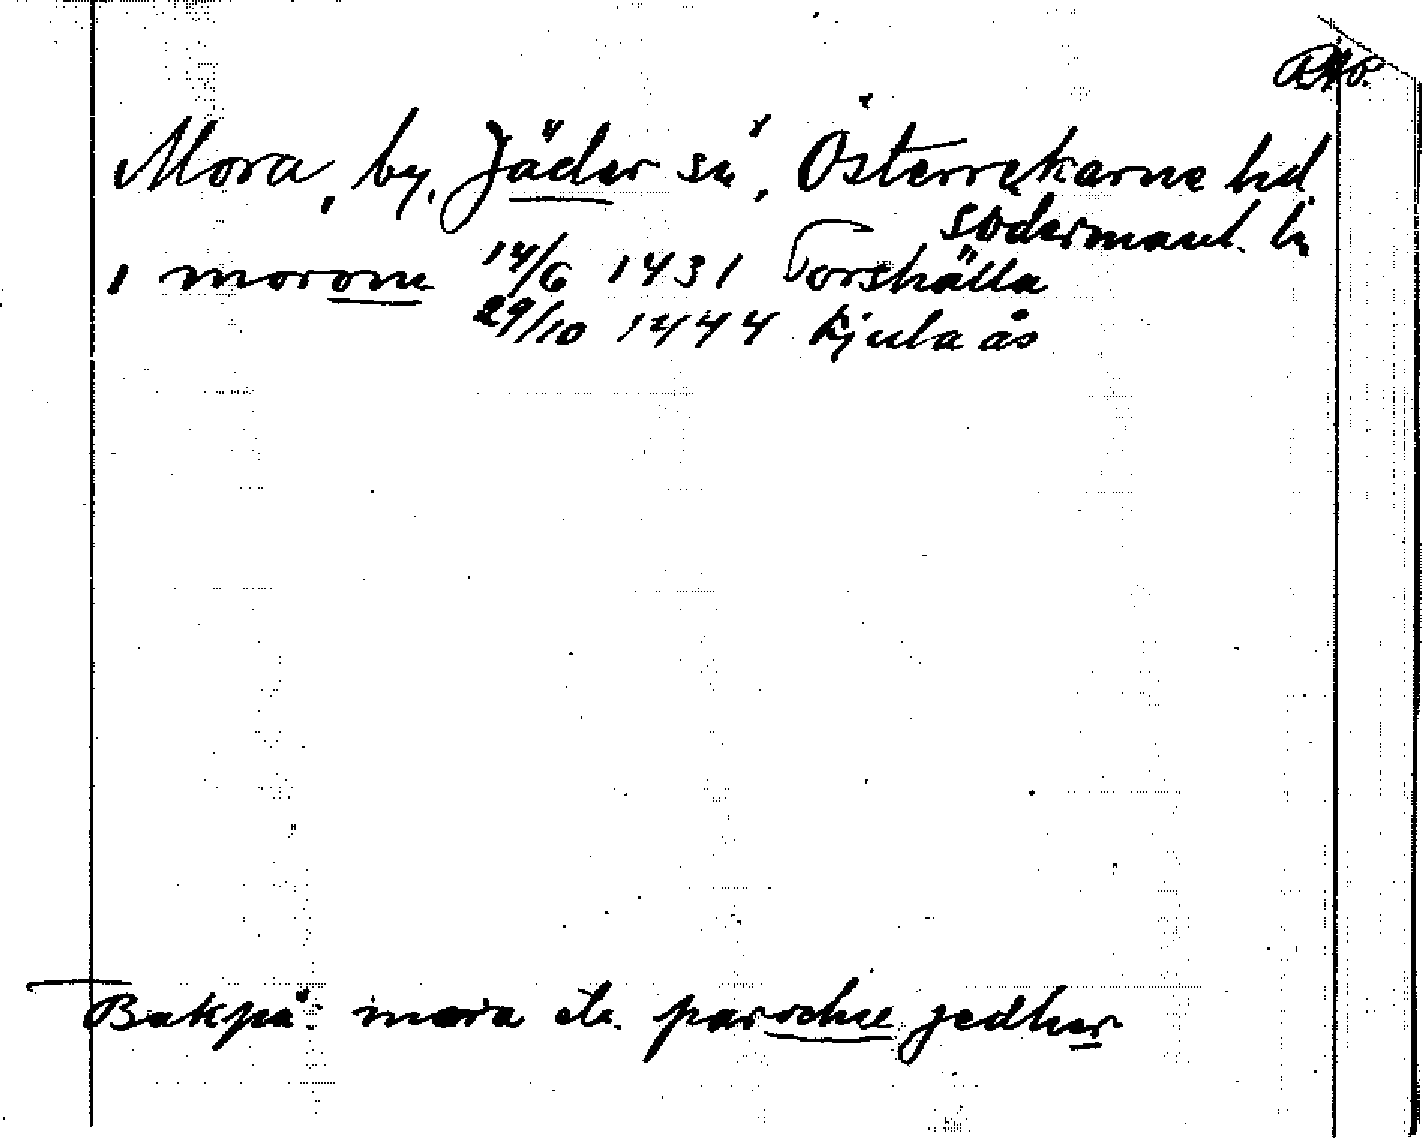 Mora, by, Jäder sn, Österrekarne hd
Södermanl. ln
i morom 14/6 1431 Torshälla
29/10 1444 Kjula ås
Bakpå: mora etc. parochie jedher